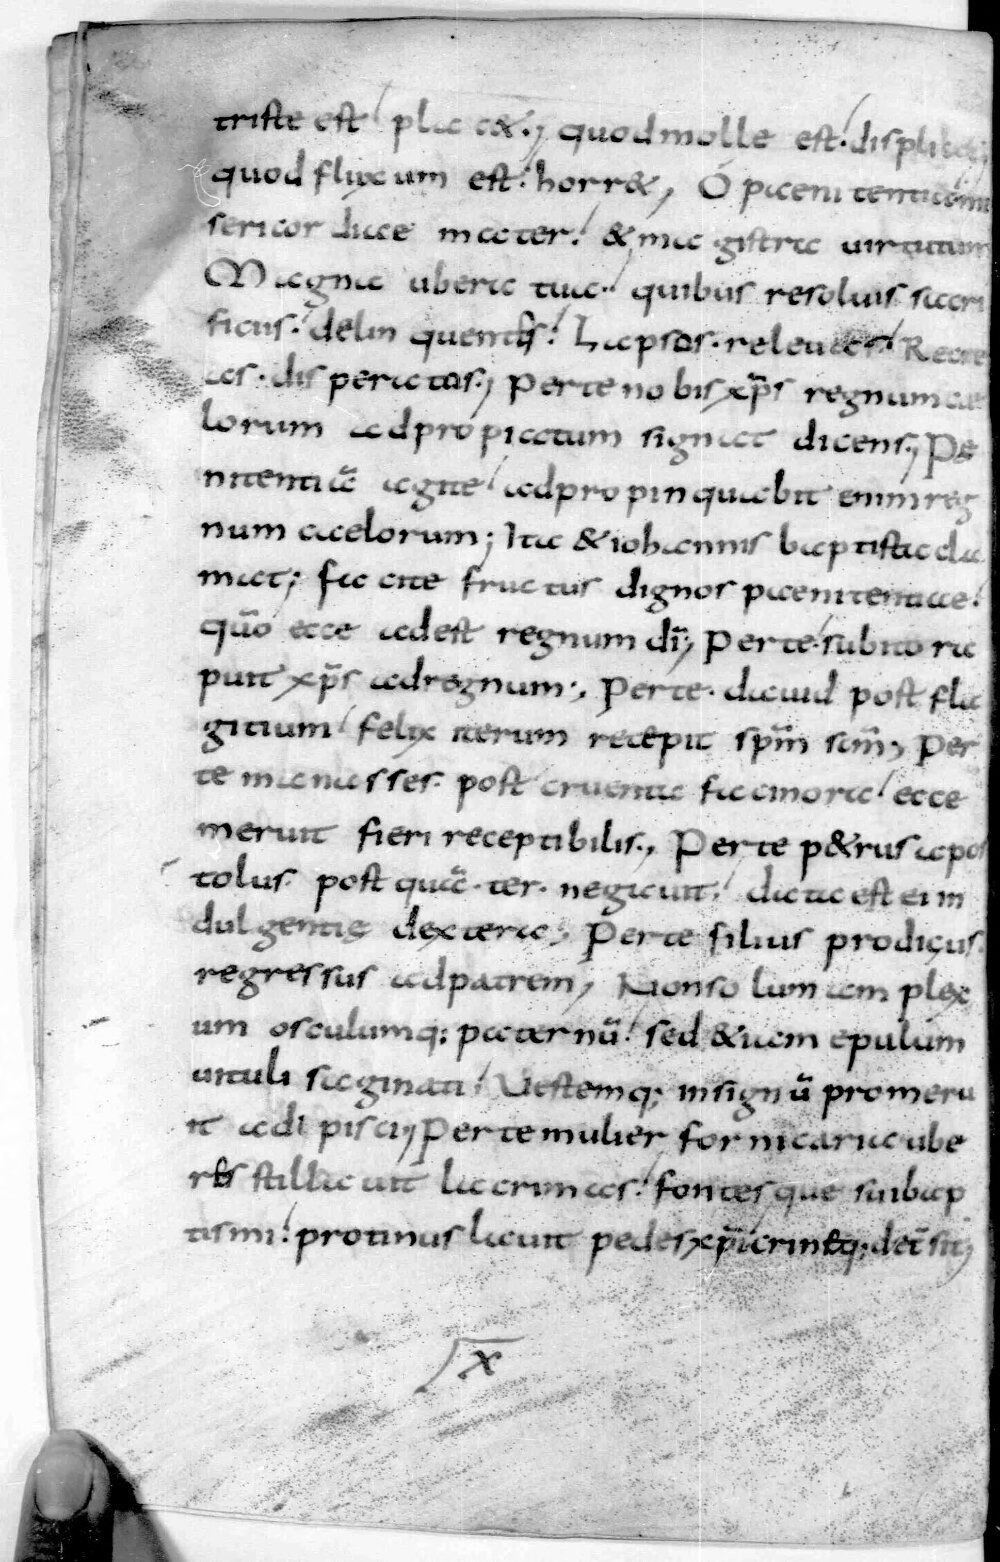 triste est plac&; quod molle est. displic&;
quod fluxum est: horr&; O paenitentia mi
sericordiae mater! & magistra uirtutum
Magna ubera tua. quibus resoluis sacri
ficus. delinquentes! Lapsos. releuas! Recre
as. disperatos; Per te nobis xp̄s regnum cae
lorum adpropiatum signat dicens; Pe
nitentiā agite adpropinquabit enim reg
num caelorum; Ita & iohannis baptista cla
mat; facite fructus dignos paenitentiae!
quō ecce adest regnum dī; Per te subito ra
puit xp̄s ad regnum; Per te. dauid post fla
gitium felix iterum recepit sp̄m sc̄m; Per
te manasses. post cruenta facinora ecce
meruit fieri receptibilis; Per te p&rus apos
tolus. post quā. ter. negauit. data est ei in
dulgentię dextera; Per te filius prodigus.
regressus ad patrem; Non solum amplex
um osculumq; paternū! sed & iam epulum
uituli saginati! Uestemq; insignū promeru
it adipisci; Per te mulier fornicaria ube
res stillauit lacrimas! fontesque sui bap
tismi! protinus lauit pedes xp̄i crinibq; det̄sit;
x